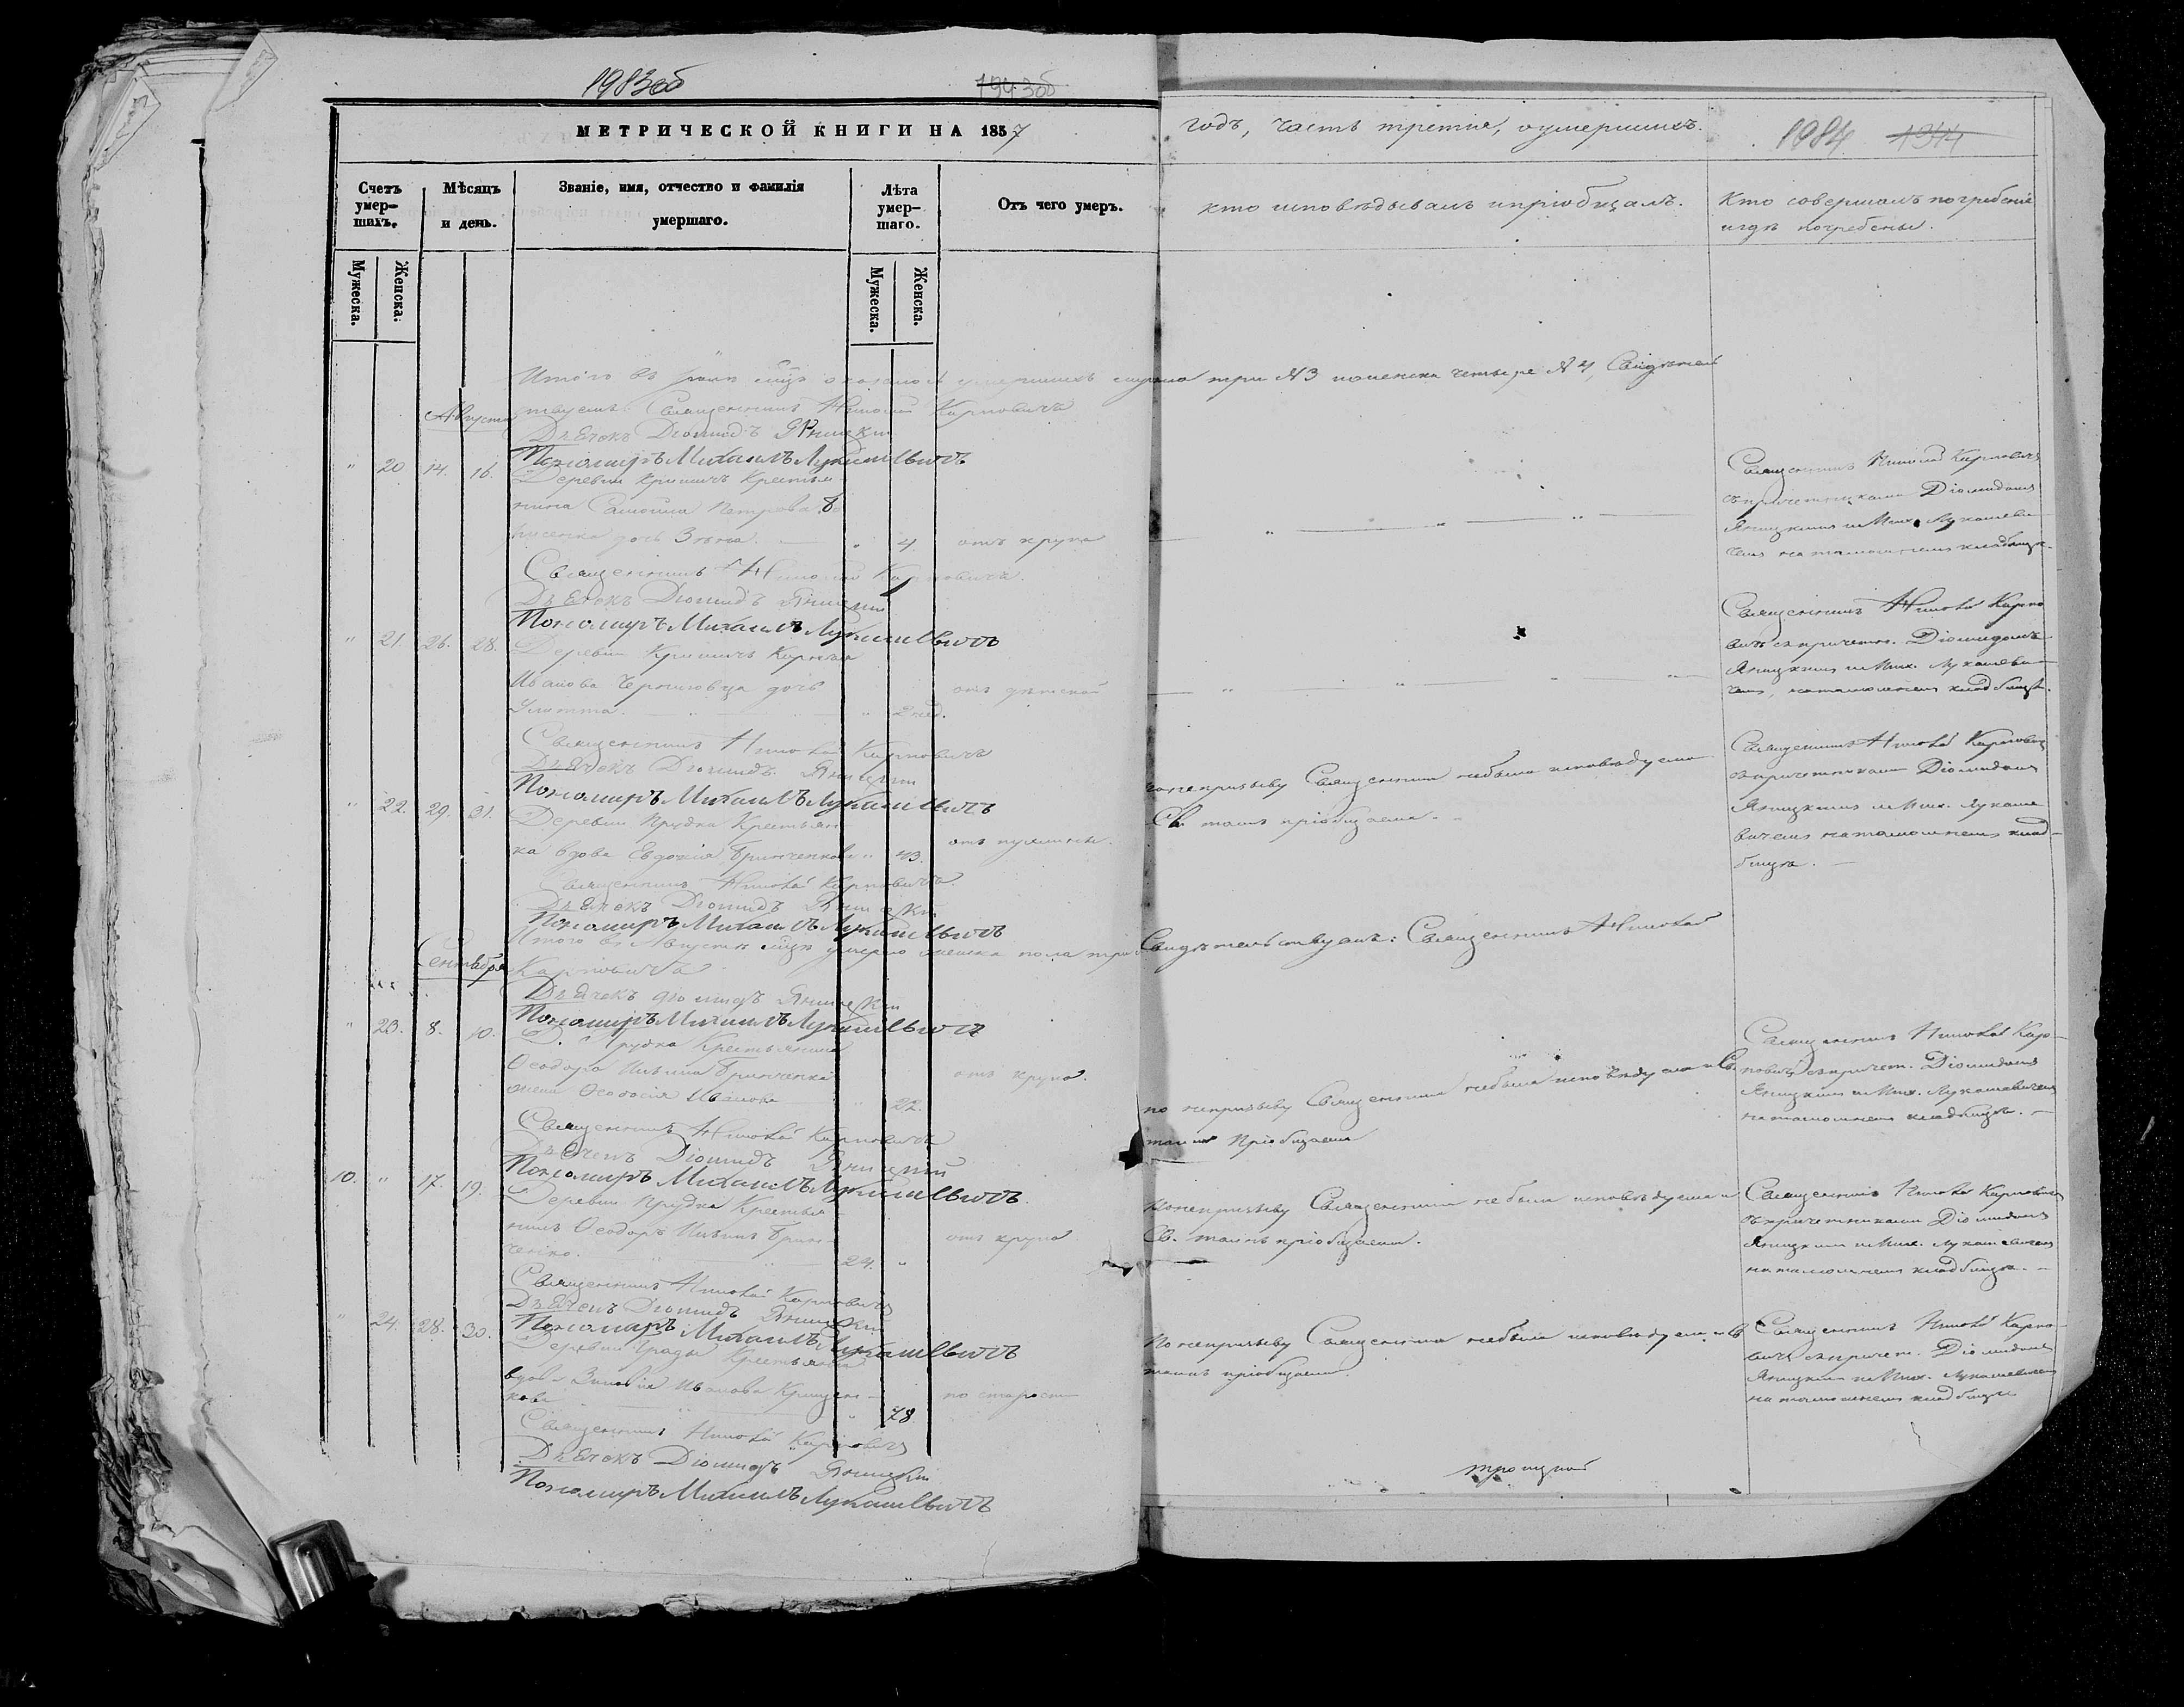 1983об 1943об
МЕТРИЧЕСКОЙ КНИГИ НА 1857
годъ, часть третія, оумершихъ.
1984 1944
Счетъ умер-
шихъ.
Мѣсяцъ
и день.
Званіе, имя, отчество и фамилія
умершаго.
Лѣта
умер-
шаго.
Отъ чего умеръ.
кто исповѣдывалъ и пріобщалъ.
Кто совершалъ погребеніе
и гдѣ погребены.
Мужеска.
Женска.
Мужеска.
Женска.
Итого въ мѣсяцѣ умершихъ три № 3 и женска четыре № 4, Свидѣтель
ствуемъ: Священникъ Николай Карповичъ
Августъ
Дьячекъ Діомидъ Яницкій
Пономарь Михаилъ Лукашевичъ
" 20 14. 16.
Деревни Криничъ Крестья
нина Самоила Петрова
дочь " 4 отъ крупа
Священникъ Николай Карповичъ
съ причетниками Діомидомъ
Яницкимъ и Мих. Лукашеви
чемъ на тамошнемъ кладбищѣ.
Священникъ Николай Карповичъ.
Дьячекъ Діомидъ Яницкій
Пономарь Михаилъ Лукашевичъ
" 21. 26. 28.
Деревни Криничъ
Иванова дочь
" 2 нед.
отъ дѣтской
Священникъ Николай Карпо
вичъ съ причетн. Діомидомъ
Яницкимъ и Мих. Лукашеви
чемъ, на тамошнемъ кладбищѣ.
Священникъ Николай Карповичъ
Дьячекъ Діомидъ Яницкій
Пономарь Михаилъ Лукашевичъ
" 22. 29. 31.
Деревни Прудка Крестьян
ка вдова Евдокія Гринченкова " 43.
по непризыву Священника небыла исповѣдуема
Св. таинъ пріобщаема.
Священникъ Николай Карповичъ
съ причетниками Діомидомъ
Яницкимъ и Мих. Лукаше
вичемъ на тамошнемъ клад
бищѣ.
Священникъ Николай Карповичъ.
Дьячекъ Діомидъ Яницкій
Пономарь Михаилъ Лукашевичъ
Итого въ Августѣ мцѣ умерло женска пола три Свидѣтельствуемъ: Священникъ Николай
Сентября
Карповичъ
Дьячекъ Діомидъ Яницкій
Пономарь Михаилъ Лукашевичъ
" 23. 8. 10.
Д. Прудка Крестьянина
Ѳеодора Ильина Гринченка
жена Иванова " 22.
отъ крупа.
по непризыву Священника небыла исповѣдуема и Св.
таинъ пріобщаема
Священникъ Николай Кар
повичъ съ причет. Діомидомъ
Яницкимъ и Мих. Лукашевичемъ
на тамошнемъ кладбищѣ.
Священникъ Николай Карповичъ
Дьячекъ Діомидъ Яницкій
Пономарь Михаилъ Лукашевичъ.
10. " 17. 19.
Деревни Прудка Крестья
нинъ Ѳеодоръ Ильинъ Грин
ченко. 24. "
отъ крупа
По непризыву Священника не былъ исповѣдуемъ и
Св. таинъ пріобщаемъ.
Священникъ Николай Карповичъ
съ причетниками Діомидомъ
Яницкимъ и Мих. Лукашевичемъ
на тамошнемъ кладбищѣ.
Священникъ Николай Карповичъ
Дьячекъ Діомидъ Яницкій
Пономарь Михаилъ Лукашевичъ
" 24. 28. 30.
Деревни Крестьянка
вдова Иванова
" 78
по старости
По непризыву Священника небыла исповѣдуема и Св
таинъ пріобщаема.
Священникъ Николай Карпо
вичъ съ причет. Діомидомъ
Яницкимъ и Мих. Лукашевичемъ
на тамошнемъ кладбищѣ
Священникъ Николай Карповичъ
Дьячекъ Діомидъ Яницкій
Пономарь Михаилъ Лукашевичъ
троицкой